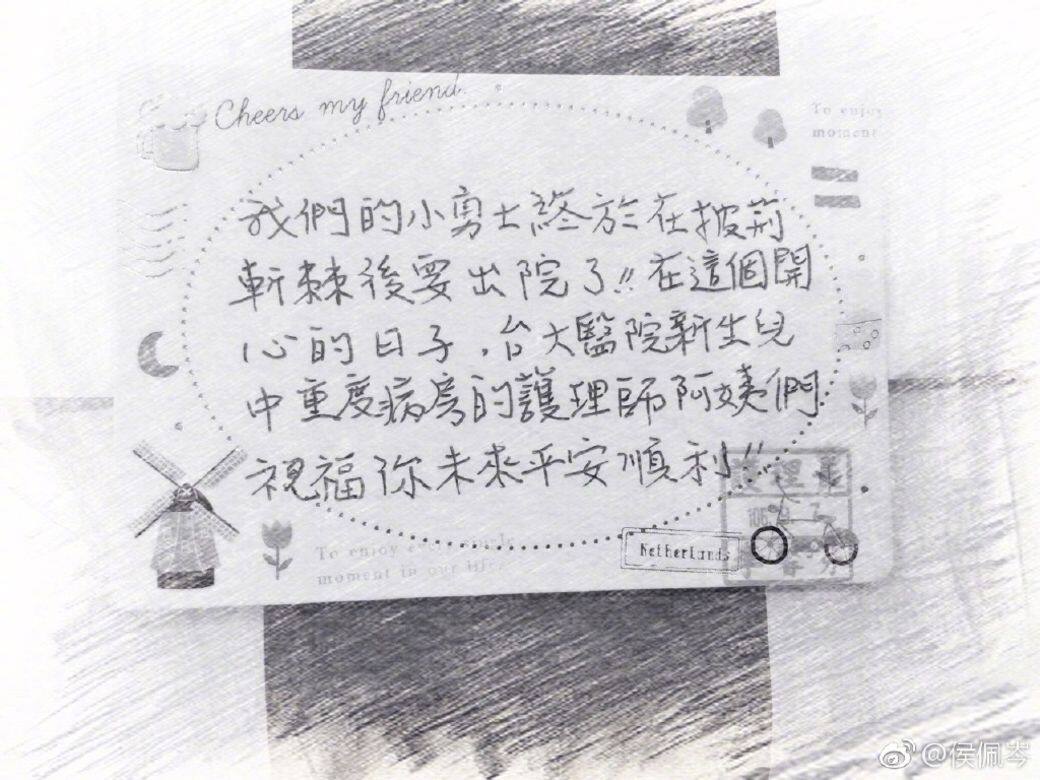 Cheers my friend.
To enjoy
moment
我們的小勇士終於在披荊
斬棘後要出院了!!在這個開
心的日子,台大醫院新生兒
中重度病房的護理師阿姨們
祝福你未來平安順利!!
To enjoy every single
moment in our life.
Netherlands
@侯佩岑